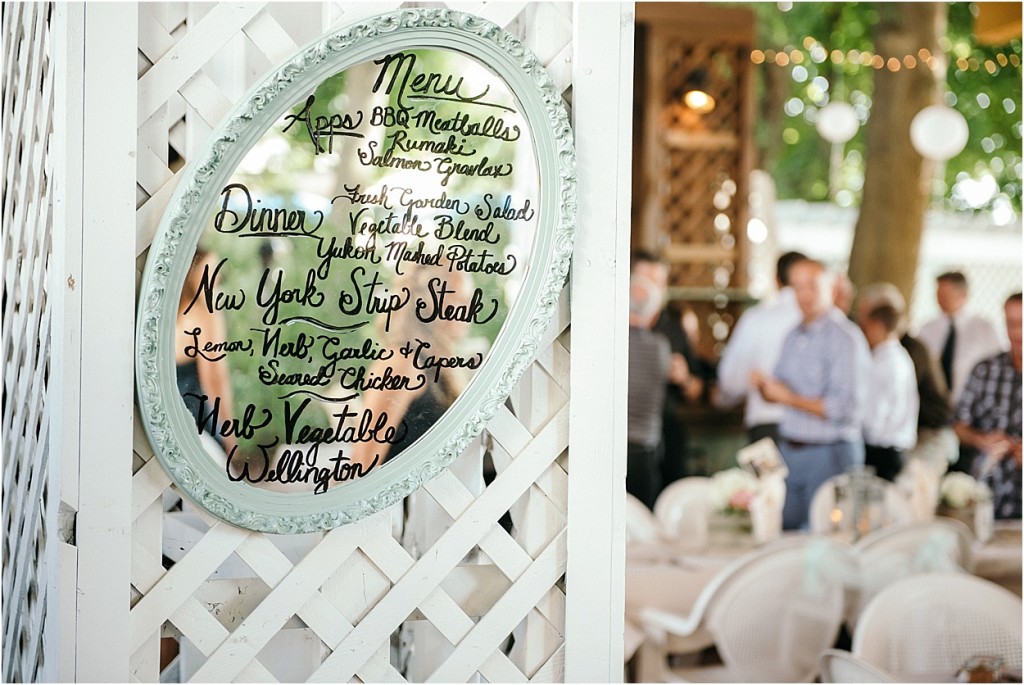 Menu
Apps BBQ Meatballs
Rumaki
Salmon Gravlax
Dinner Fresh Garden Salad
Vegetable Blend
Yukon Mashed Potatoes
New York Strip Steak
Lemon, Herb, Garlic + Capers
Seared Chicken
Herb Vegetable
Wellington